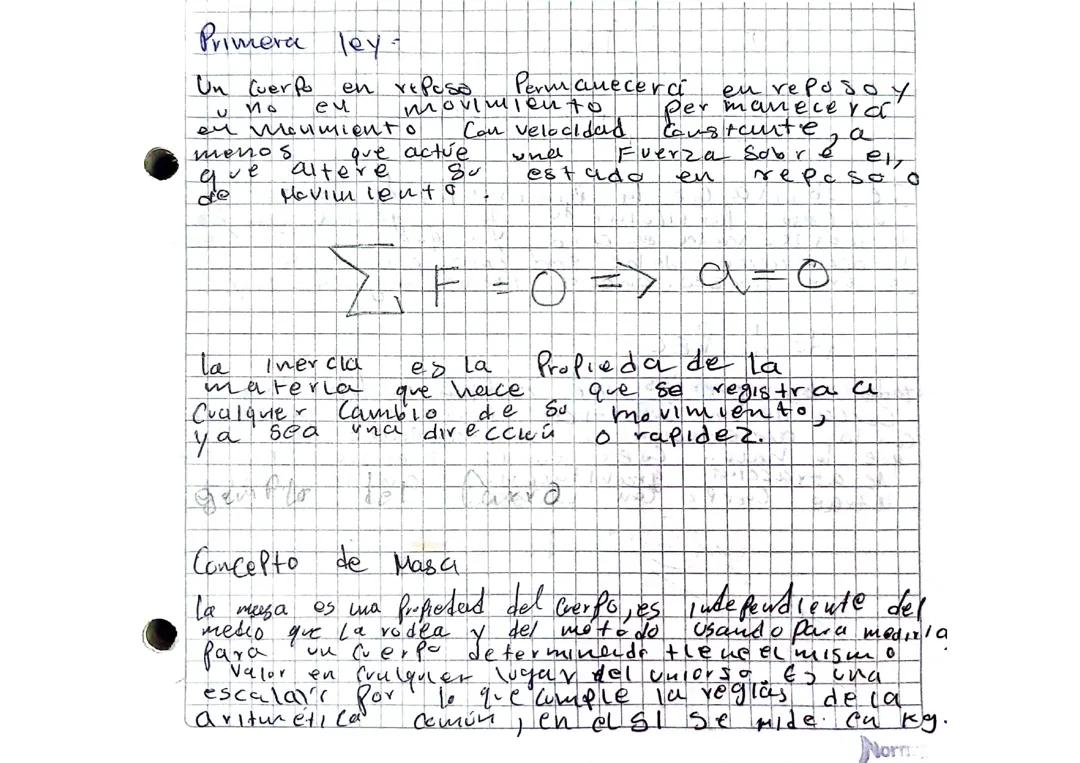 Primera ley-
Un Cuerpo en reposo Permanecerá en reposo y
u no en movimiento permanecerá
en movimiento Con velocidad Constante, a
menos que actúe una Fuerza sobre el,
que altere su estado en reposo o
de Movimiento.
∑ F = 0 => a = 0
La inercia es la Propieda de la
materia que hace que se registra a
Cualquier Cambio de su movimiento,
ya sea una dirección o rapidez.
ejemplo del Carro
Concepto de Masa
La masa es una Propiedad del Cuerpo, es independiente del
medio que la rodea y del método usando para medirla
Para un Cuerpo determinado tiene el mismo
Valor en Cualquier lugar del universo. Es una
escalar por lo que Cumple la reglas de la
aritmética común, en el SI se mide en Kg.
Norm